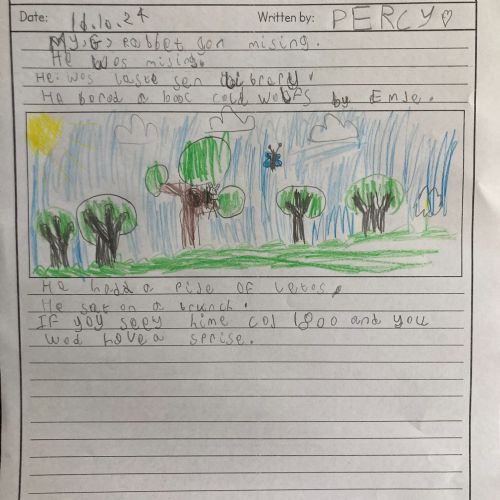 Date: 18.10.24 Written by: PERCY
My G rabbet gon mising.
He wos mising.
He wos laste sen library.
He bored a booc cold wolfs by Emle.
He hadd a pise of letos.
He sat on a brunch.
If yoy seey hime col 1800 and you
wod have a sprise.